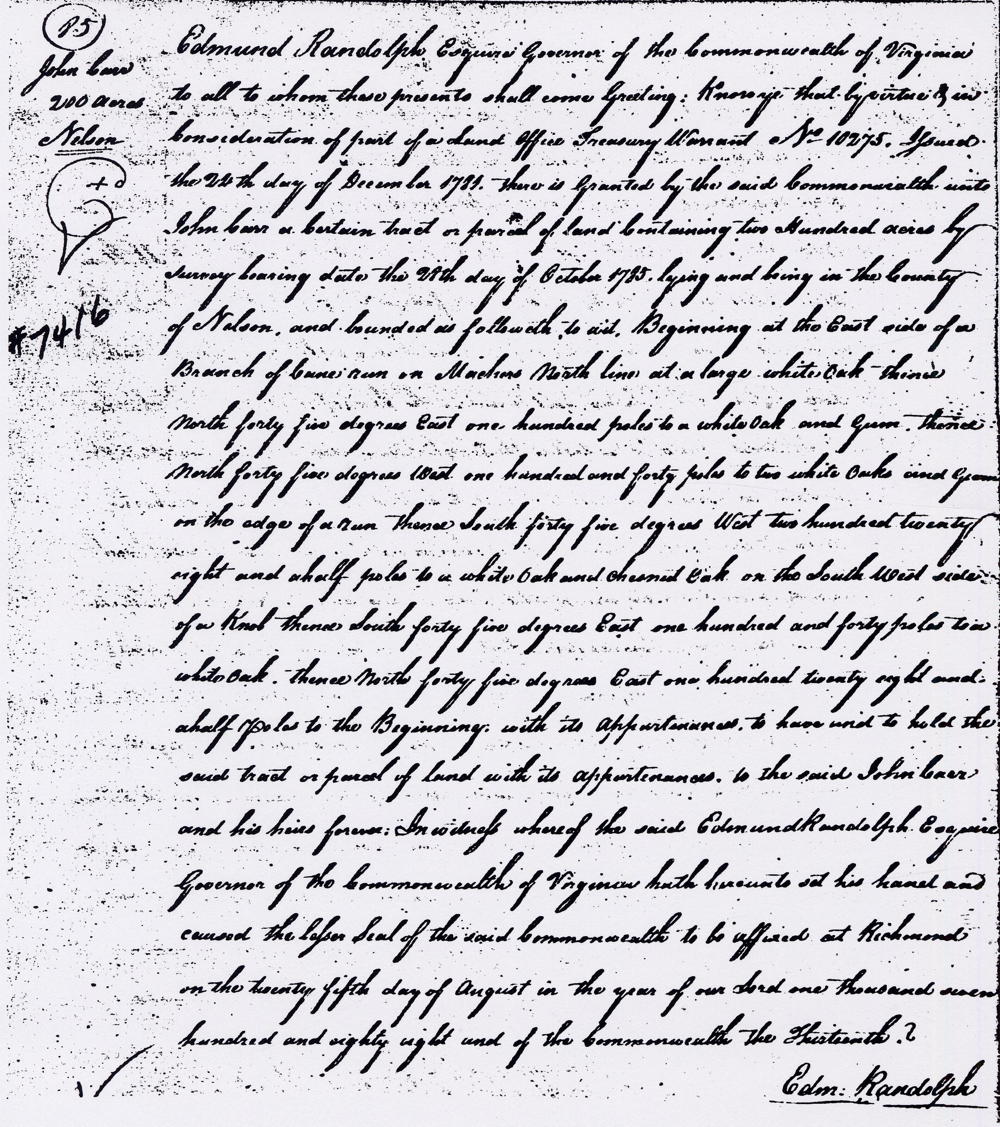 85
John Carr
200 acres
Nelson
#7416
Edmund Randolph Esquire Governor of the Commonwealth of Virginia
to all to whom these presents shall come Greeting: Know ye that by virtue & in
Consideration of part of a Land Office Treasury Warrant No 10275. Issued
the 24th day of December 1781. there is Granted by the said Commonwealth unto
John Carr a Certain tract or parcel of land Containing two Hundred acres by
survey bearing date the 28th day of October 1785. lying and being in the County
of Nelson. and bounded as followeth to wit. Beginning at the East side of a
Branch of Cane run on North line at a large white Oak thence
North forty five degrees East one hundred poles to a white Oak and Gum. thence
North forty five degrees West one hundred and forty poles to two white Oaks and Gum
on the edge of a run thence South forty five degrees West two hundred twenty
eight and a half poles to a white Oak and Chesned Oak on the South West side
of a Knob thence South forty five degrees East one hundred and forty poles to a
white Oak. thence North forty five degrees East one hundred twenty eight and
a half Poles to the Beginning. with its Appurtenances. to have and to hold the
said tract or parcel of land with its appurtenances. to the said John Carr
and his heirs forever: In witness whereof the said Edmund Randolph Esquire
Governor of the Commonwealth of Virginia hath hereunto set his hand and
caused the lesser Seal of the said Commonwealth to be affixed at Richmond
on the twenty fifth day of August in the year of our Lord one thousand seven
hundred and eighty eight and of the Commonwealth the Thirteenth.
Edm: Randolph